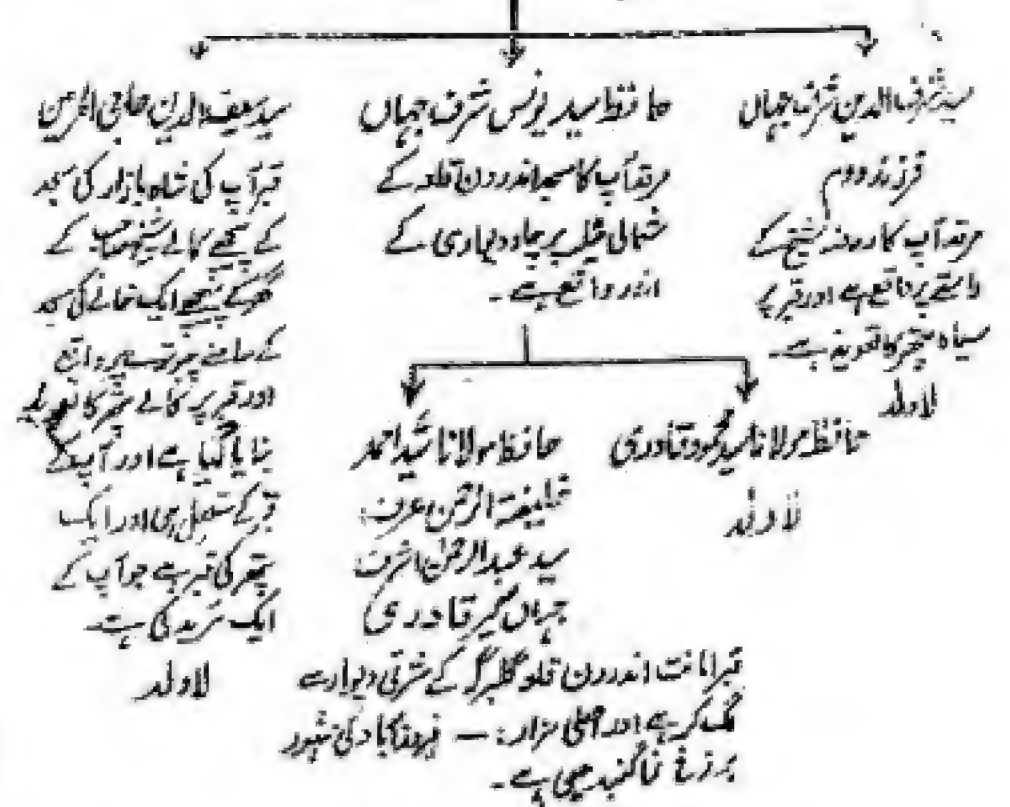 سید شرف الدین شرف جہاں
فرزند دوم
مرقد آپ کا روضہ شیخ کے
راستے پر واقع ہے اور قبر پر
سیاہ پتھر کا تعویذ ہے۔
لاولد
حافظ سید یونس شرف جہاں
مرقد آپ کا مسجد اندرون قلعہ کے
شمالی ٹیلہ پر چار دیواری کے
اندر واقع ہے۔
حافظ مولانا سید محمود قادری
لاولد
حافظ مولانا سید احمد
خلیفۃ الرحمٰن عرف:
سید عبدالرحمٰن اشرف
جہاں گیر قادری
قبر امانت اندرون قلعہ گلبرگہ کے شرقی دیوار سے
لگ کر ہے اور اصلی مزار: — فیروزآباد
گنبد ہے۔
سید سیف الدین حاجی الحرمین
قبر آپ کی شاہ بازار کی مسجد
کے پیچھے کالے صاحب کے
گھر کے پیچھے ایک خانے کی مسجد
کے سامنے چبوترے پر واقع
اور قبر پر کالے پتھر کا تعویذ
بنایا گیا ہے اور آپ کے
قبر کے متصل ہی اور ایک
پتھر کی قبر ہے جو آپ کے
ایک مرید کی ہے۔
لاولد